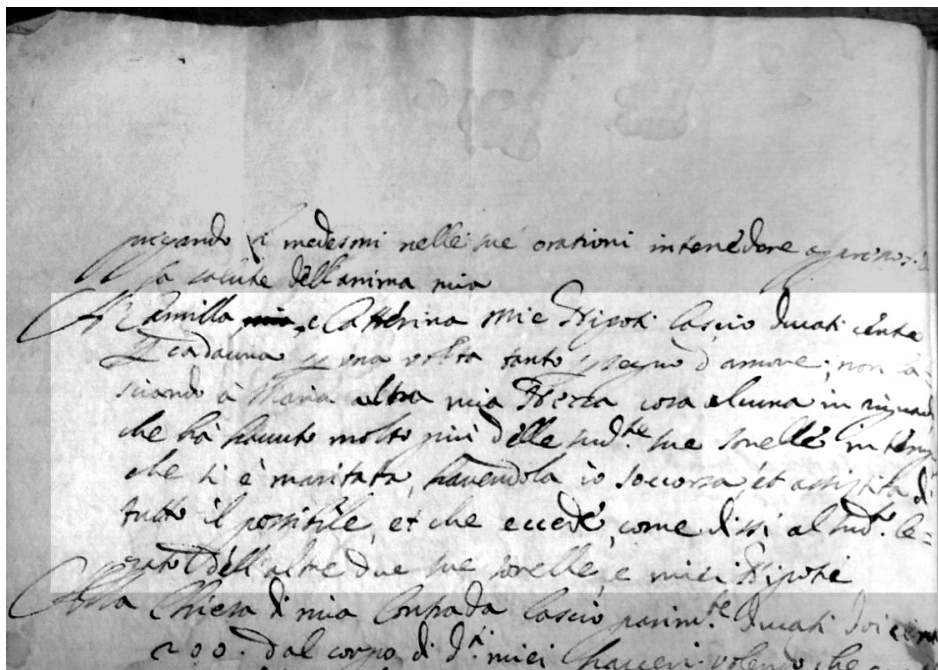 pregando li medesmi nelle sue orationi intercedere
la salute dell'anima mia
A Camilla e Catterina mie Nipoti lascio Ducati cento
p cadauna p una volta tanto p segno d'amore; non la=
sciando à Maria altra mia Nezza cosa alcuna in riguardo
che hà hauuto molto più delle sud.te sue sorelle in tempo
che si è maritata, havendola io soccorsa et assistita di
tutto il possibile, et che eccede, come dissi al sud.o le=
gato dell'altre due sue sorelle, e miei Nipoti
Alla Chiesa di mia Contrada lascio parim.te Ducati doicento
200. dal corpo di d.i miei haueri volendo che